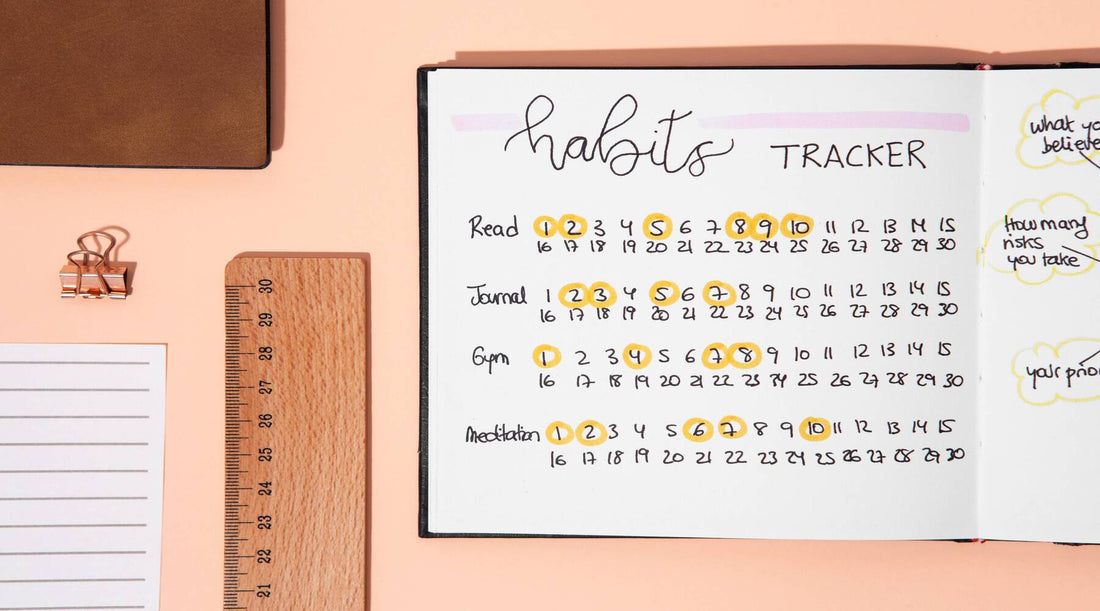 habits TRACKER
Read 1 2 3 4 5 6 7 8 9 10 11 12 13 14 15
16 17 18 19 20 21 22 23 24 25 26 27 28 29 30
Journal 1 2 3 4 5 6 7 8 9 10 11 12 13 14 15
16 17 18 19 20 21 22 23 24 25 26 27 28 29 30
Gym 1 2 3 4 5 6 7 8 9 10 11 12 13 14 15
16 17 18 19 20 21 22 23 24 25 26 27 28 29 30
Meditation 1 2 3 4 5 6 7 8 9 10 11 12 13 14 15
16 17 18 19 20 21 22 23 24 25 26 27 28 29 30
what yo
believe
How many
risks
you take
your prior
30
29
28
27
26
25
24
23
22
21